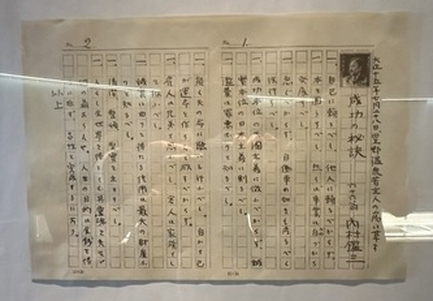 大正十五年七月二十八日星野温泉若主人の為に草す
成功の秘訣
六十六翁 内村鑑三
No. 1.
一、自己に頼るべし、他人に頼るべからず。
一、本を固うすべし、然らば事業は自づから
発展すべし。
一、急ぐべからず、自働車の如きも成るべく
徐行すべし。
一、成功本位の米国主義に倣ふべからず、誠
実本位の日本主義に則るべし。
一、濫費は罪悪なりと知るべし。
No. 2
一、能く天の命に聴いて行ふべし。自から己
が運命を作らんと欲すべからず。
一、雇人は兄弟と思ふべし。客人は家族とし
て扱ふべし。
一、誠実に由りて得たる信用は最大の財産な
りと知るべし。
一、清潔、整頓、堅実を主とすべし。
一、人もし全世界を得るとも其霊魂を失はば
何の益あらんや。人生の目的は金銭を得
るに非ず。品性を完成するにあり。
以上